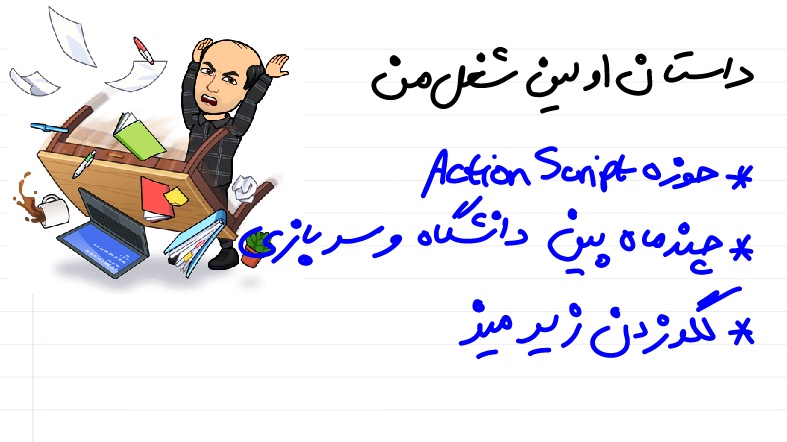 داستان اولین شغل من
* حوزه Action Script
* چند ماه بین دانشگاه و سربازی
* لگد زدن زیر میز